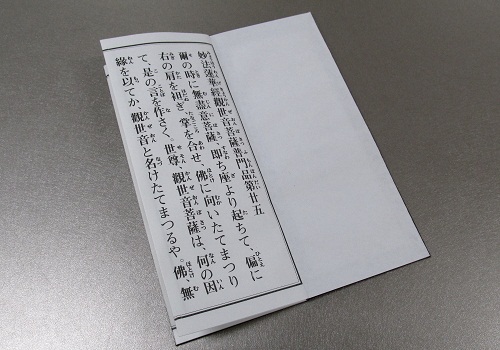 妙法蓮華經觀世音菩薩普門品第廿五
爾の時に無盡意菩薩、即ち座より起ちて、偏に
右の肩を袒ぎ、掌を合せ、佛に向いたてまつり
て、是の言を作さく。世尊、觀世音菩薩は、何の因
緣を以てか、觀世音と名けたてまつるや。佛、無